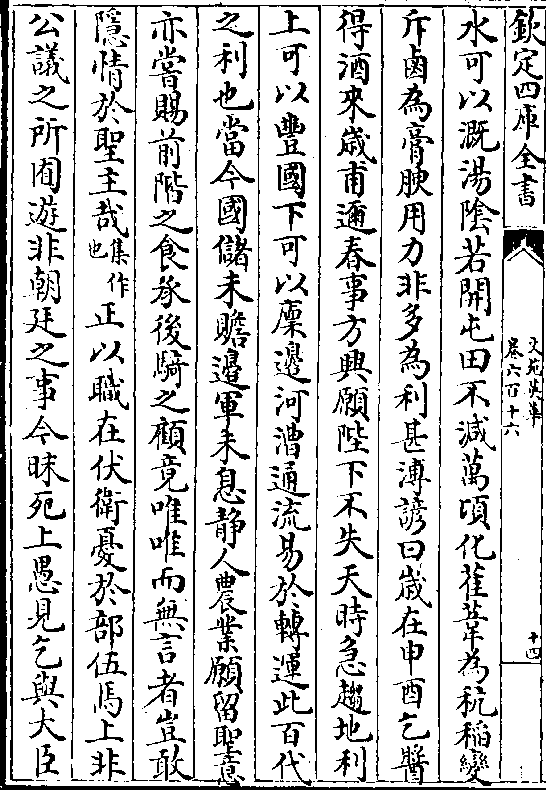 欽定四庫全書
文苑英華
卷六百十六
十四
水可以溉湯陰若開屯田不減萬頃化萑葦為秔稻變
斥鹵為膏腴用力非多為利甚溥諺曰嵗在申酉乞醬
得酒來嵗甫邇春事方興願陛下不失天時急趨地利
上可以豐國下可以廩邊河漕通流易於轉運此百代
之利也當今國儲未贍邊軍未息靜人農業願留聖意
亦嘗賜前階之食承後騎之顧竟唯唯而無言者豈敢
隱情於聖主哉集作也正以職在伏衛憂於部伍馬上非
公議之所囿遊非朝廷之事今昧死上愚見乞與大臣